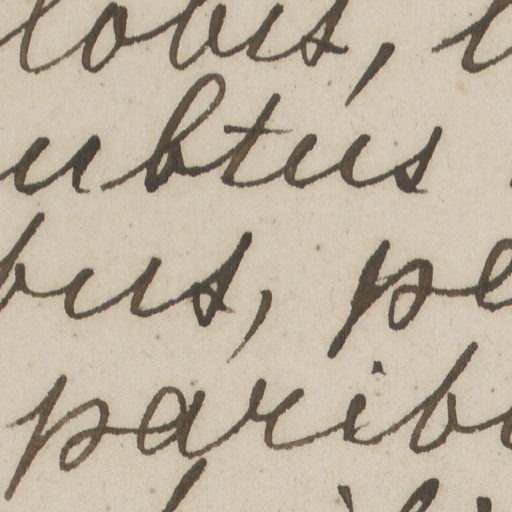 lobis,
ubtus
bus, pe
parib